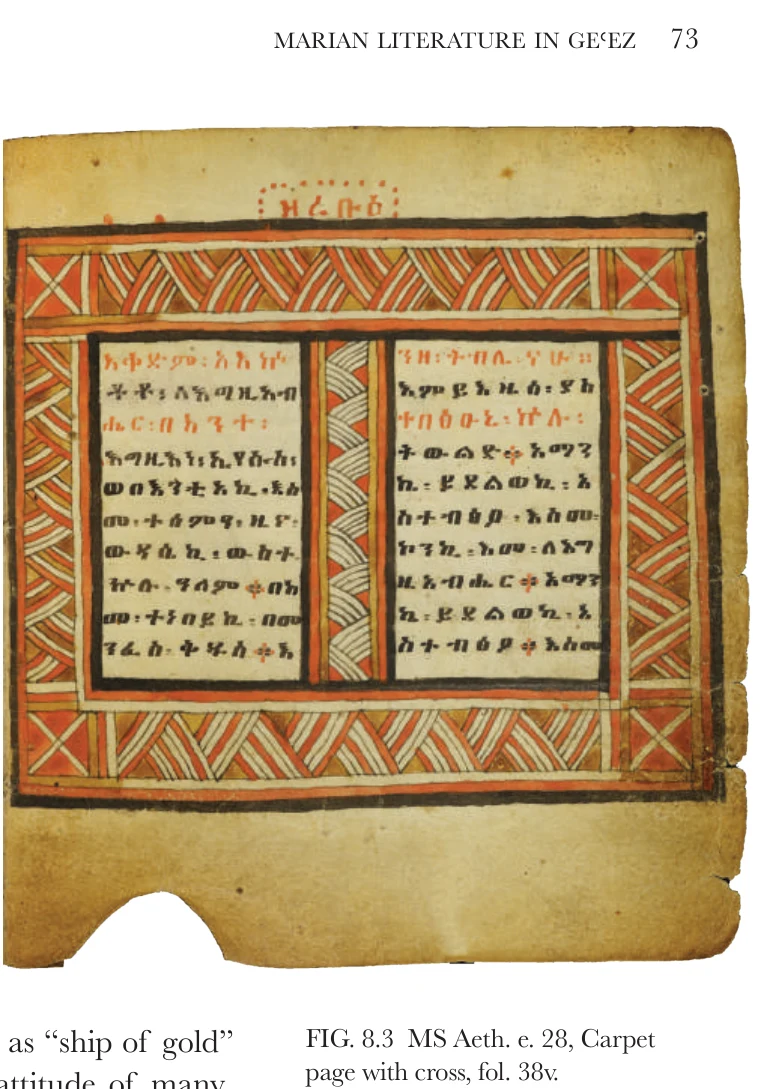 MARIAN LITERATURE IN GEʿEZ 73
ዘረቡዕ
አቅድም፡አእኵ
ቶቶ፡ለእግዚአብ
ሔር፡በእንተ፡
እግዚእነ፡ኢየሱስ፡
ወበእንቲአኪ፡እስ
መ፡ተሰምዓ፡ዜና፡
ውዳሴኪ፡ውስተ፡
ኵሉ፡ዓለም።በከ
መ፡ተነበይኪ፡በመ
ንፈስ፡ቅዱስ።እ
ንዘ፡ትብሊ፡ናሁ፡፡
እምይእዜሰ፡ያስ
ተበፅዑኒ፡ኵሉ፡
ትውልድ።አማን
ኪ፡ይደልወኪ፡አ
ስተብፅዖ፡እስመ፡
ኮንኪ፡እመ፡ለእግ
ዚአብሔር።አማን
ኪ፡ይደልወኪ፡አ
ስተብፅዖ።እስመ
as “ship of gold”
attitude of many
FIG. 8.3 MS Aeth. e. 28, Carpet
page with cross, fol. 38v.